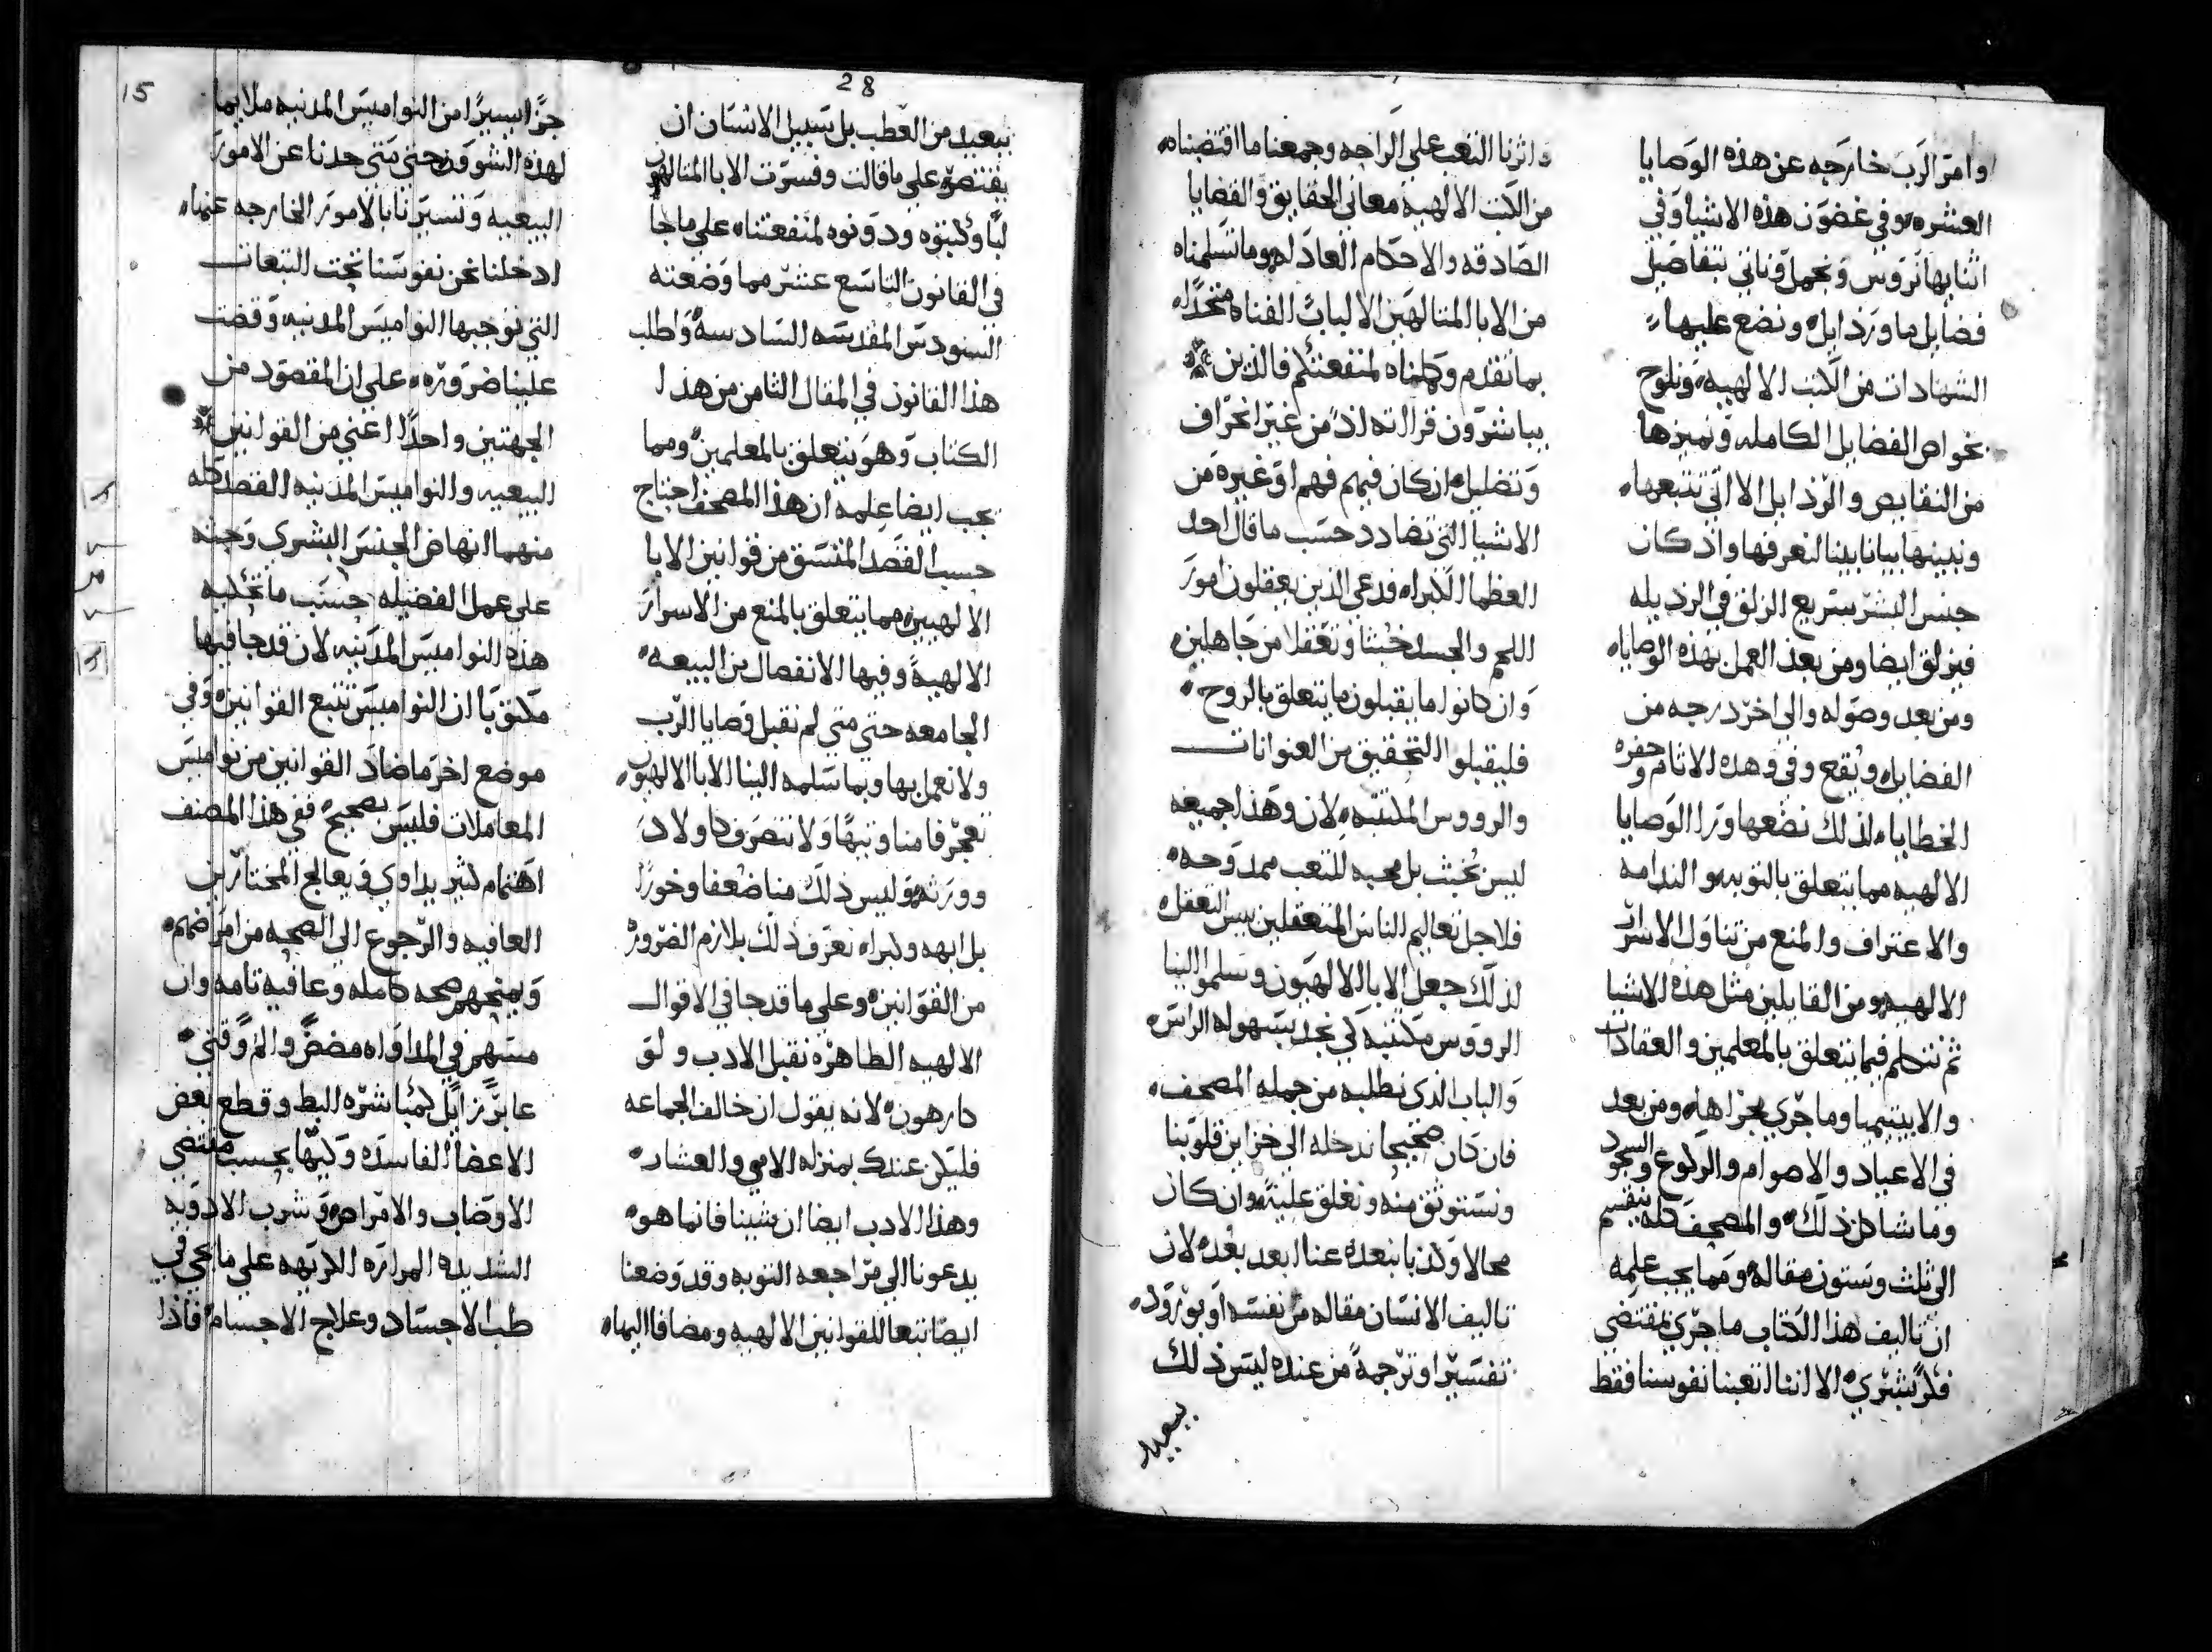 وامر الرب خارجه عن هذه الوصايا
العشره وفي غضون هذه الاشيا وفي
اثنايها نروس ونجمل وناتي بتفاصيل
فضايل ما ورذايل ونضع عليها
الشهادات من الكتب الالهيه ونلوح
بخواص الفضايل الكامله ونميزها
من النقايص والرذايل الاالتي تتبعها
ونبينها بيانا بينا لنعرفها واذ كان
جنس البشر سريع الزلق في الرذيله
فيزلق ايضا ومن بعد العمل بهذه الوصايا
ومن بعد وصوله والى اخر درجه من
الفضايل ويقع وفي وهده الاثام وحفره
الخطايا لذلك نضعها ورا الوصايا
الالهيه مما يتعلق بالتوبه والندامه
والاعتراف والمنع من تناول الاسرار
الالهيه ومن القايلين مثل هذه الاشيا
ثم نتكلم فيما يتعلق بالمعلمين والعقادات
والابيتيميا وما جرى مجراها ومن بعد
في الاعياد والاصوام والركوع والسجود
وما شاكل ذلك والمصحف كله ينقسم
الى ثلث وستون مقاله ومما يجب علمه
ان تاليف هذا الكتاب ما جرى بمقتضي
فكر بشري الا اننا اتعبنا نفوسنا فقط
واثرنا التعب على الراحه وجمعنا ما اقتضبناه
من الكتب الالهية معاني الحقايق والقضايا
الصادقه والاحكام العادله وما تسلمناه
من الابا المتالهين الالباب الفناه متحدا
بما تقدم وكملناه لمنفعتكم فالذين
يباشرون قراته اذ من غير انحراف
وتضليل ان كان فيهم فهم او غيره من
الاشيا التي تضادد حسب ما قال احد
العظما الكبرا قدعى الذين يعقلون امور
اللحم والجسد خبثا وتعقلا من جاهلين
وان كانوا ما يقبلون ما يتعلق بالروح
فليقبلوا التحقيق من العنوانات
والرووس المكتتبه لان وهذا جميعه
ليس بخبث بل محبه للتعب ممدوحه
فلاجل تعاليم الناس المتعقلين بيس التعقل
لذلك جعل الابا الالهيون وسلموا الينا
الرووس مكتتبه لكي نجد بسهوله الراس
والباب الذي نطلبه من جمله المصحف
فان كان صحيحا ندخله الى خزاين قلوبنا
ونستوثق منه ونغلق عليه وان كان
محالا وكذبا نبعده عنا ابعد بعده لان
تاليف الانسان مقاله من نفسه او يورود
تفسيرا وترجمة من عنده ليس ذلك
ببعيد
28
ببعيد من العطب بل سبيل الانسان ان
يقتصر على ما قالت وفسرت الابا المتالهون
لبا وكتبوه ودونوه لمنفعتنا على ما جا
في القانون التاسع عشر مما وضعته
السنودس المقدسه السادسه واطلب
هذا القانون في المقال الثامن من هذا
الكتاب وهو يتعلق بالمعلمين ومما
يجب ايضا علمه ان هذا المصحف احتاج
حسب القصد المتسق من قوانين الابا
الالهيين مما يتعلق بالمنع من الاسرار
الالهية وفيها الانفصال من البيعه
الجامعه حتى متى لم نقبل وصايا الرب
ولا نعمل بها وبما سلمه الينا الابا الالهيون
تعجرفا منا وتيها ولا نتصرف كاولاد
وورثه وليس ذلك منا ضعفا وخورا
بل ابهه وكبرا نعرف ذلك بلازم الضروره
من القوانين وعلى ما قد جا في الاقوال
الالهيه الطاهره نقبل الادب ولق
كارهون لانه يقول ان خالف الجماعه
فليكن عندك بمنزله الامي والعشار
وهذا الادب ايضا ان شينا فانما هو
يدعونا الى مراجعه التوبه وقد وضعنا
ايضا تبعا للقوانين الالهيه ومضافا اليها
15
جزا يسيرا من النواميس المدنيه ملايما
لهذه الشوون حتى متى حدنا عن الامور
البيعيه وتسيرنا بالامور الخارجه عنها
ادخلنا نحن نفوسنا تحت التبعات
التي توجبها النواميس المدنيه وقضت
علينا ضروره على ان المقصود من
الجهتين واحدا اعني من القوانين
البيعيه والنواميس المدنيه القصد كله
منهما انهاض الجنس البشري وحثه
على عمل الفضيله حسب ما تحكيه
هذه النواميس المدنيه لان قد جا فيها
مكتوبا ان النواميس تتبع القوانين وفي
موضع اخر ما ضاد القوانين من نواميس
المعاملات فليس بصحيح ففي هذا المصنف
اهتمام كثير يداوي ويعالج المختارين
العافيه والرجوع الى الصحه من امراضهم
ويمنحهم صحه كامله وعافيه تامه وان
مستهم في المداواه مضض والم وقتي
عابر زايل كمباشره البط وقطع بعض
الاعضا الفاسده وكيها بحسب مقتضي
الاوصاب والامراض وشرب الادويه
الشديده المراره الكريهه على ما يجي في
طب الاجساد وعلاج الاجسام فاذا